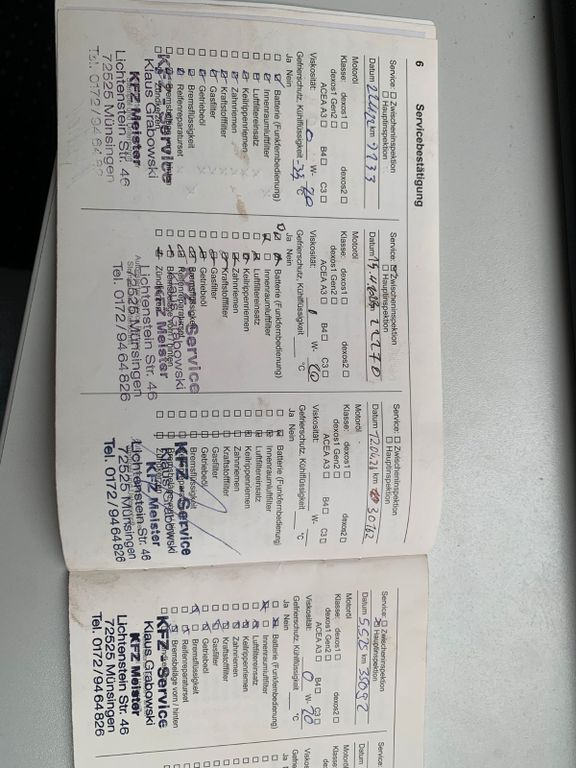 6 Servicebestätigung
Service: Zwischeninspektion
Hauptinspektion
Datum km 9133
Motoröl
Klasse: dexos1 dexos2
dexos1 Gen2 B4 C3
ACEA A3
Viskosität: 0 W- 20
Gefrierschutz, Kühlflüssigkeit -35 °C
Ja Nein
Batterie (Funkfernbedienung)
Innenraumluftfilter
Luftfiltereinsatz
Keilrippenriemen
Zahnriemen
Kraftstofffilter
Gasfilter
Getriebeöl
Bremsflüssigkeit
Reifenreparaturset
KFZ - Service
Klaus Grabowski
KFZ Meister
Lichtenstein Str. 46
72525 Münsingen
Tel. 0172/9464826
Service: Zwischeninspektion
Hauptinspektion
Datum km
Motoröl
Klasse: dexos1 dexos2
dexos1 Gen2 B4 C3
ACEA A3
Viskosität: W-
Gefrierschutz, Kühlflüssigkeit °C
Ja Nein
Batterie (Funkfernbedienung)
Innenraumluftfilter
Luftfiltereinsatz
Keilrippenriemen
Zahnriemen
Kraftstofffilter
Gasfilter
Getriebeöl
Bremsflüssigkeit
Reifenreparaturset
KFZ - Service
Klaus Grabowski
KFZ Meister
Lichtenstein Str. 46
72525 Münsingen
Tel. 0172/9464826
Service: Zwischeninspektion
Hauptinspektion
Datum 12.04.24 km 30762
Motoröl
Klasse: dexos1 dexos2
dexos1 Gen2 B4 C3
ACEA A3
Viskosität: W-
Gefrierschutz, Kühlflüssigkeit °C
Ja Nein
Batterie (Funkfernbedienung)
Innenraumluftfilter
Luftfiltereinsatz
Keilrippenriemen
Zahnriemen
Kraftstofffilter
Gasfilter
Getriebeöl
Bremsflüssigkeit
KFZ - Service
Klaus Grabowski
KFZ Meister
Lichtenstein Str. 46
72525 Münsingen
Tel. 0172/9464826
Service: Zwischeninspektion
Hauptinspektion
Datum km
Motoröl
Klasse: dexos1 dexos2
dexos1 Gen2 B4 C3
ACEA A3
Viskosität: 0 W- 20
Gefrierschutz, Kühlflüssigkeit °C
Ja Nein
Batterie (Funkfernbedienung)
Innenraumluftfilter
Luftfiltereinsatz
Keilrippenriemen
Zahnriemen
Kraftstofffilter
Gasfilter
Getriebeöl
Bremsflüssigkeit
Reifenreparaturset
Bremsbeläge vorn / hinten
KFZ - Service
Klaus Grabowski
KFZ Meister
Lichtenstein Str. 46
72525 Münsingen
Tel. 0172/9464826
Service:
Datum
Motoröl
Klasse:
Ja